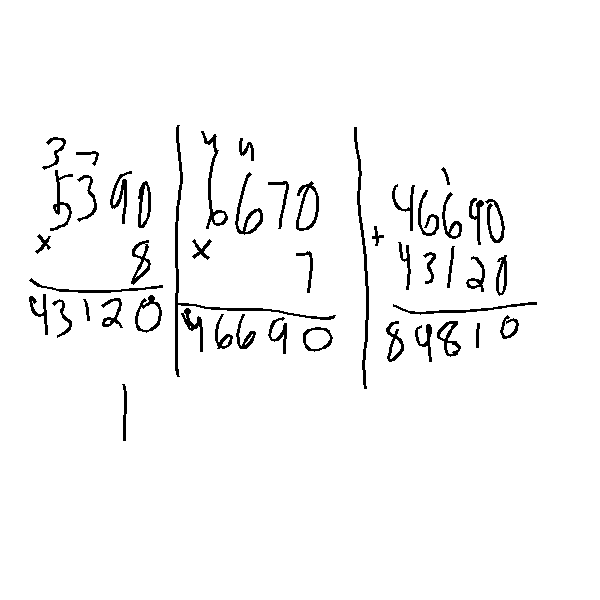 3 7
5390
× 8
43120
4 4
6670
× 7
46690
1
46690
+ 43120
89810
1